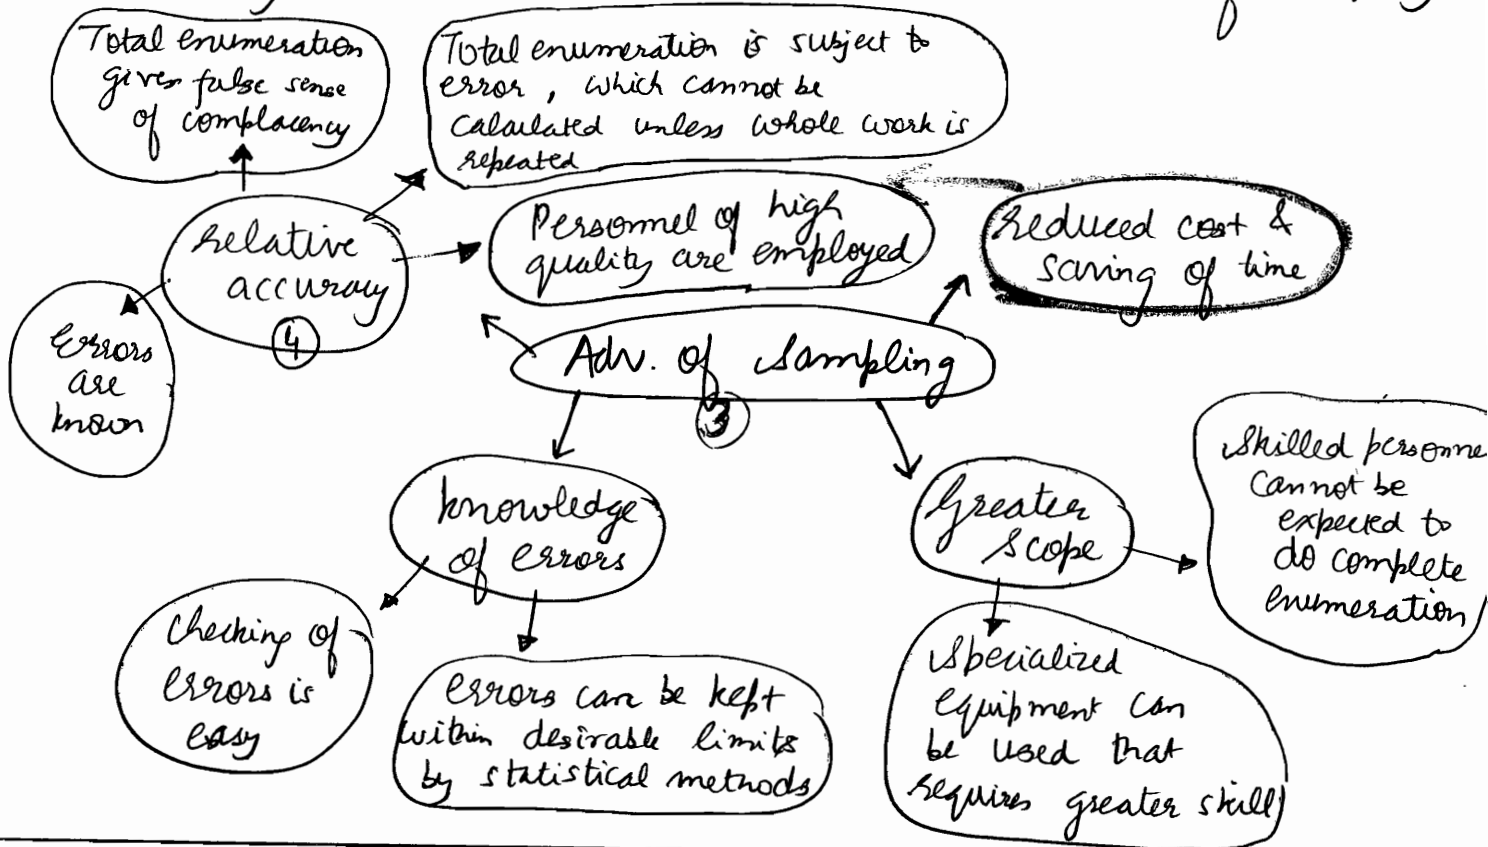 Total enumeration
gives false sense
of complacency
Total enumeration is subject to
error, which cannot be
calculated unless whole work is
repeated
Relative
accuracy
4
Personnel of high
quality are employed
Reduced cost &
saving of time
Errors
are
known
Adv. of Sampling
3
Knowledge
of errors
Greater
Scope
Skilled personne
cannot be
expected to
do complete
enumeration
Checking of
errors is
easy
errors can be kept
within desirable limits
by statistical methods
Specialized
equipment can
be used that
requires greater skill